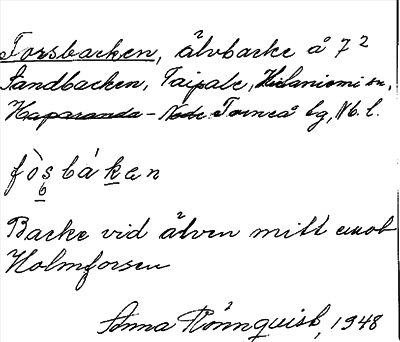 Forsbacken, älvbacke å 7 2
Sandbacken, Taipale, Hietaniemi sn,
Haparanda - Nedre Torneå tg, Nb. l.
fòsbáken
b
Backe vid älven mitt emot
Holmforsen
Anna Rönnquist, 1948